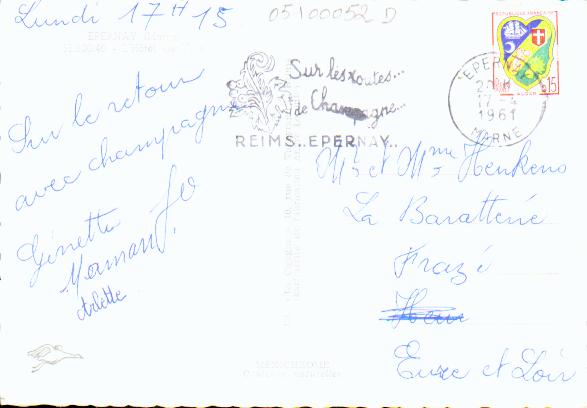 Lundi 17H15
05100052 D
EPERNAY (Marne)
Sur le retour
avec champagne
Ginette
Maman
Arlette
Sur les routes...
de Champagne...
REIMS..EPERNAY..
REPUBLIQUE FRANÇAISE
ALGER
0,15
EPERNAY
17-4
1961
MARNE
Mr et Mme Henkens
La Baratterie
Frazé
Eure et Loir
MEXICHROME